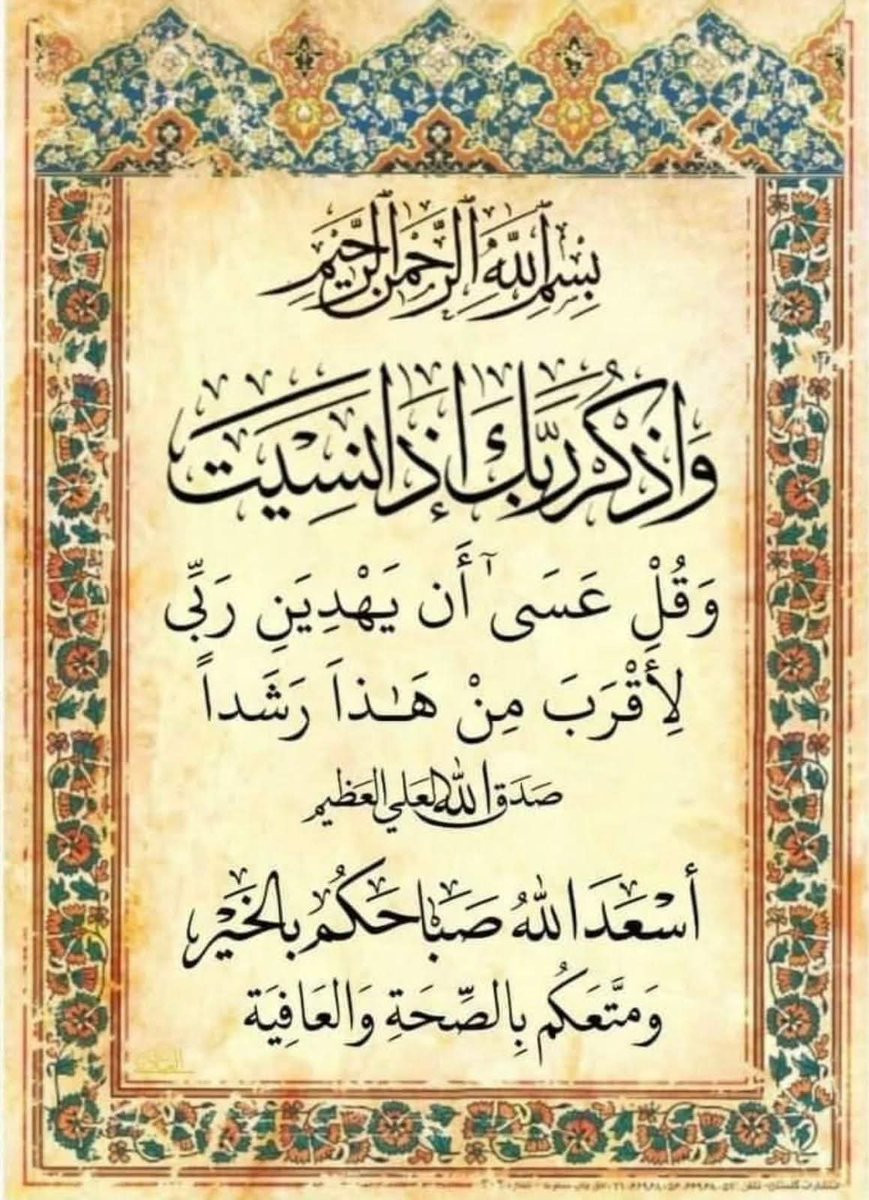 بِسْمِ اللَّهِ الرَّحْمَٰنِ الرَّحِيْمِ
وَاذْكُرْ رَبَّكَ إِذَا نَسِيْتَ
وَقُلْ عَسَىٰٓ أَن يَهْدِيَنِ رَبِّى
لِأَقْرَبَ مِنْ هَـٰذَا رَشَداً
صَدَقَ اللهُ العَلي العَظِيم
أَسْعَدَ اللهُ صَبَاحَكُمْ بِالخَيْرِ
وَمَتَّعَكُم بِالصِّحَةِ وَالعَافِيَة